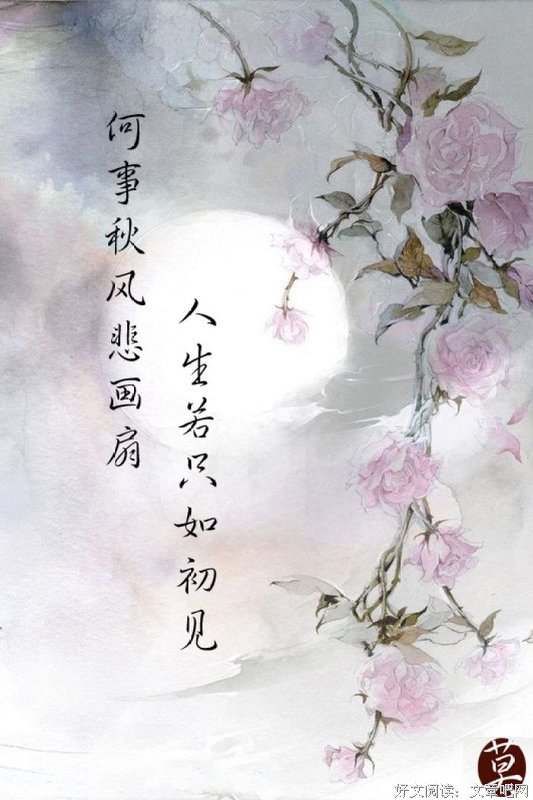 人生若只如初见
何事秋风悲画扇
草
好文阅读：文章吧网